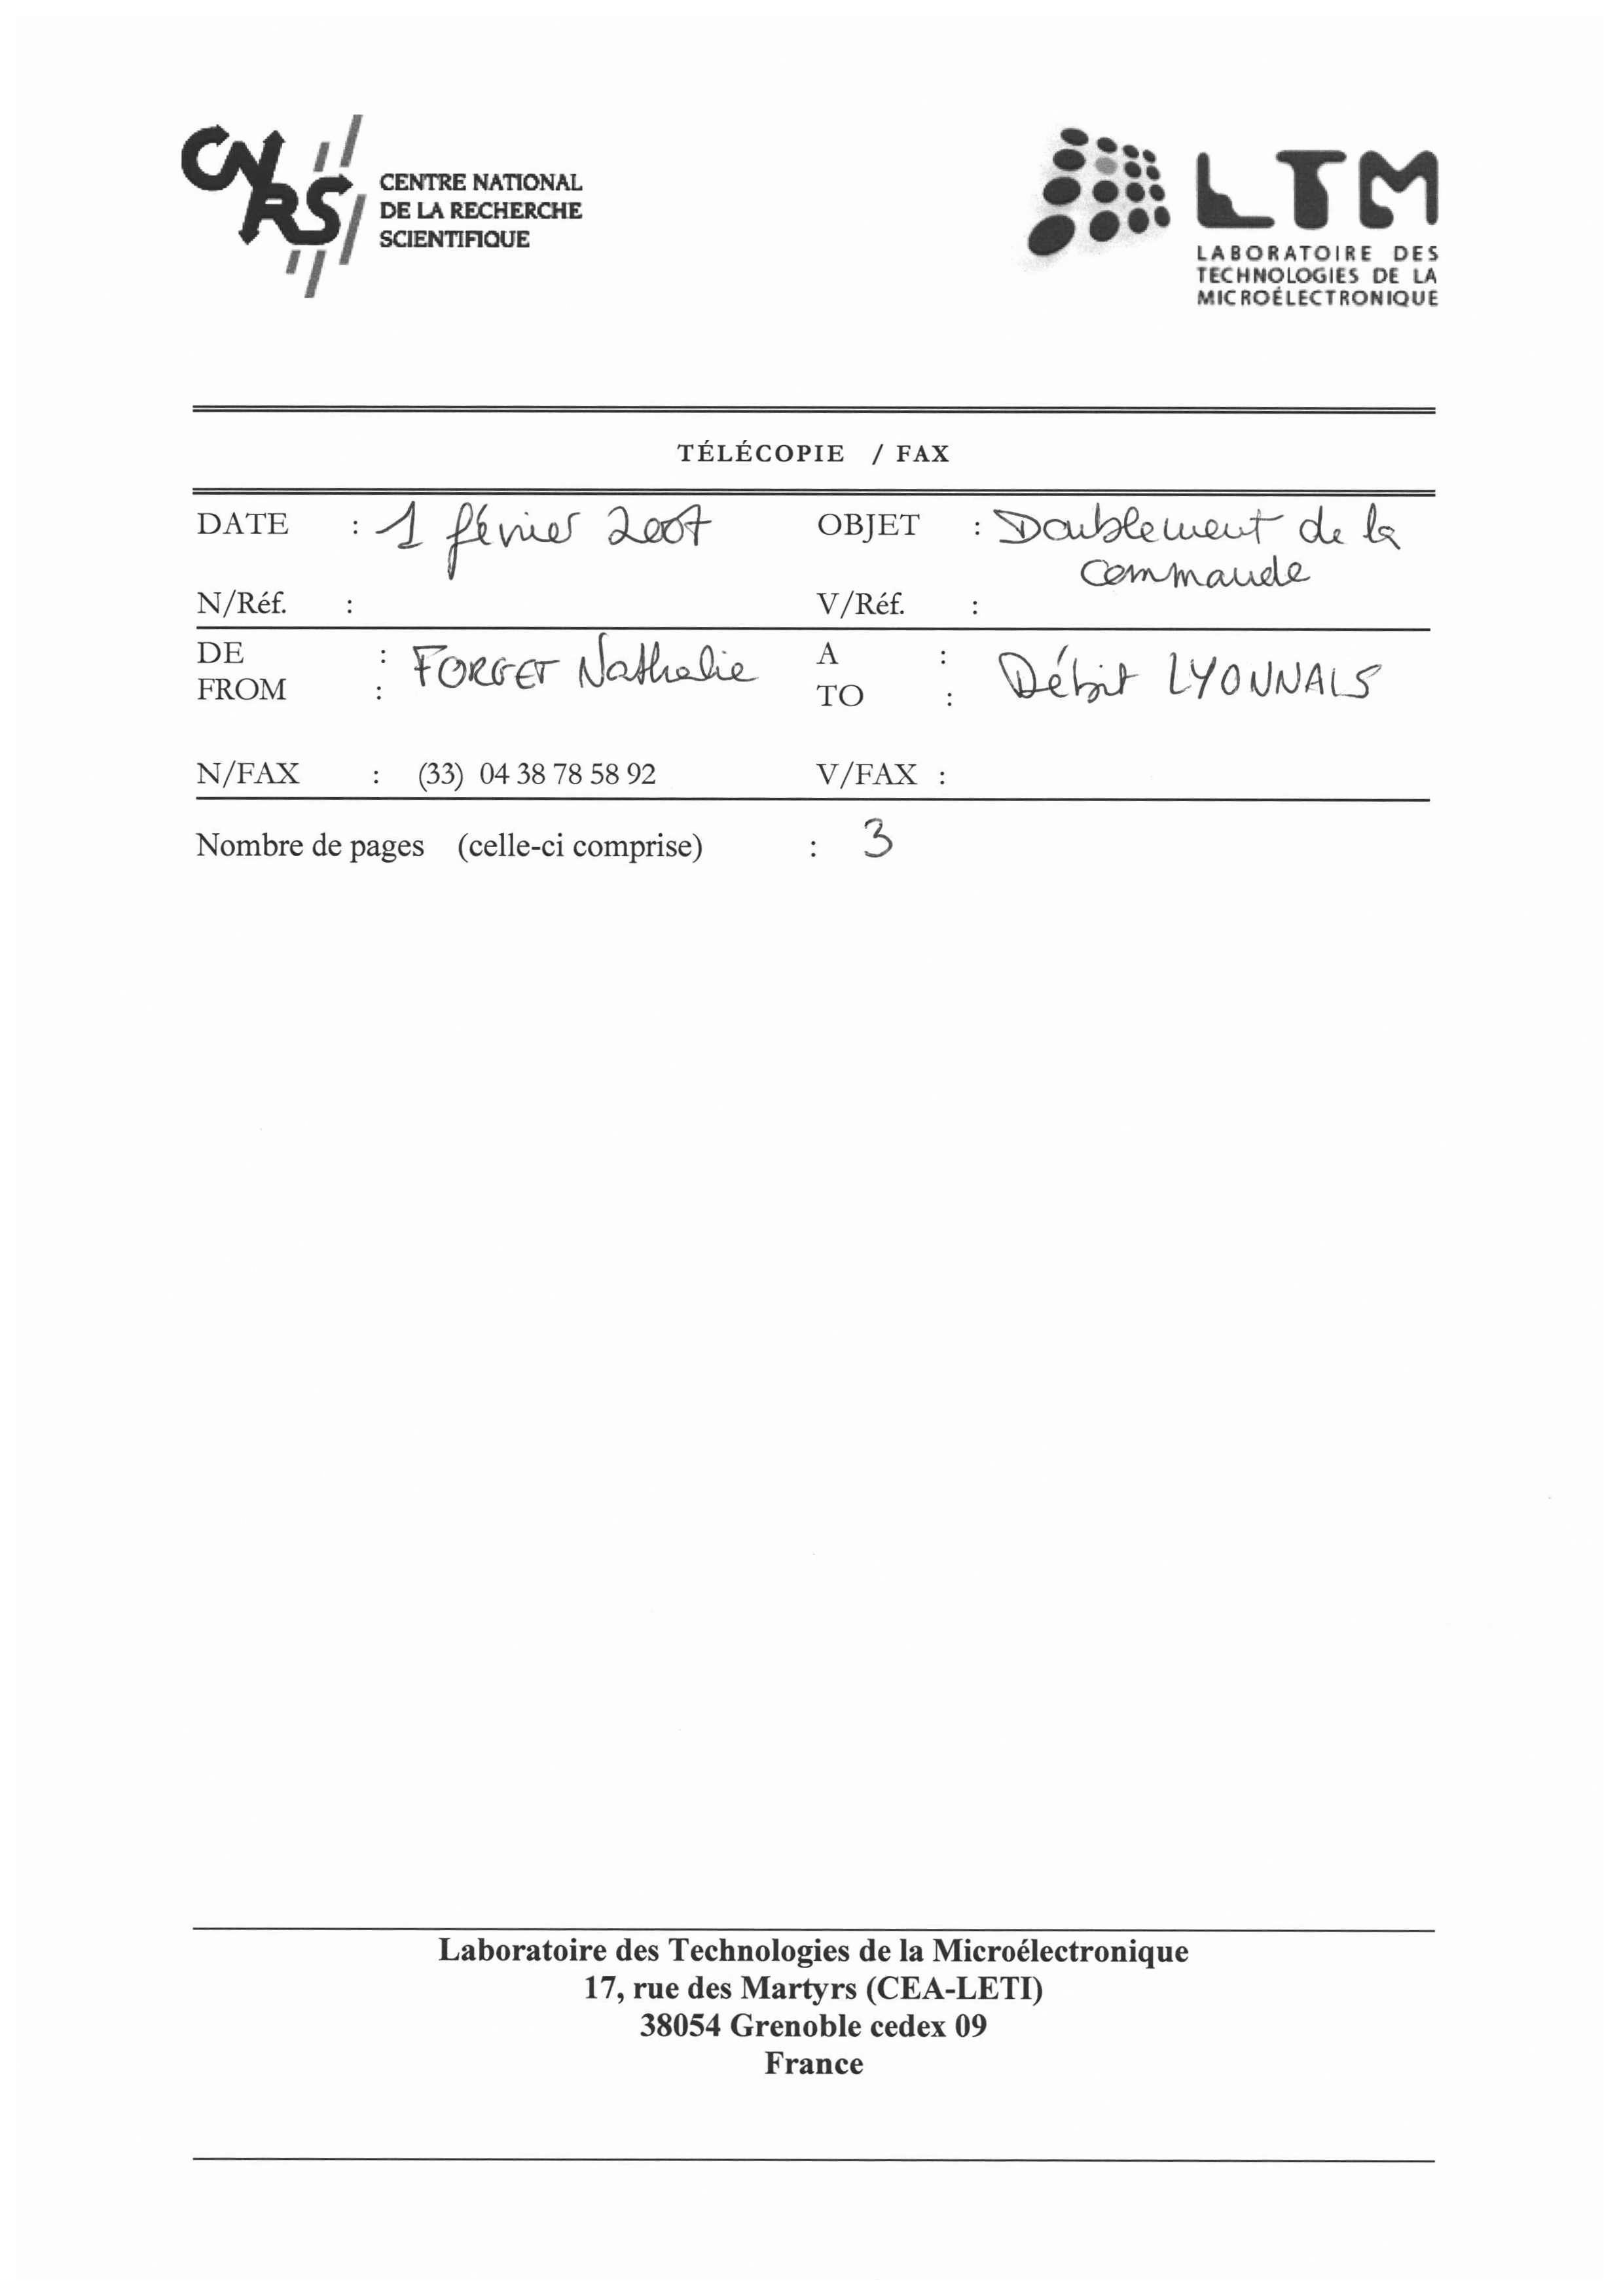 CNRS
CENTRE NATIONAL
DE LA RECHERCHE
SCIENTIFIQUE
LTM
LABORATOIRE DES
TECHNOLOGIES DE LA
MICROÉLECTRONIQUE
TÉLÉCOPIE / FAX
DATE : 1 février 2007 OBJET : Doublement de la
commande
N/Réf. : V/Réf. :
DE : FORGET Nathalie A : Débit LYONNAIS
FROM : TO :
N/FAX : (33) 04 38 78 58 92 V/FAX :
Nombre de pages (celle-ci comprise) : 3
Laboratoire des Technologies de la Microélectronique
17, rue des Martyrs (CEA-LETI)
38054 Grenoble cedex 09
France